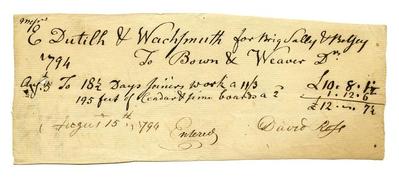 Messrs
E Dutilh & Wachsmuth for Brig Sally & Betsey
To Bown & Weaver Dr
1794
Augt 5 To 18½ Days Joiners work a 11/3 £10.8.1½
195 feet of Cedar & pine boards a 2d 1.12.6
£12...7½
August 15th, 1794 Entered David Ross